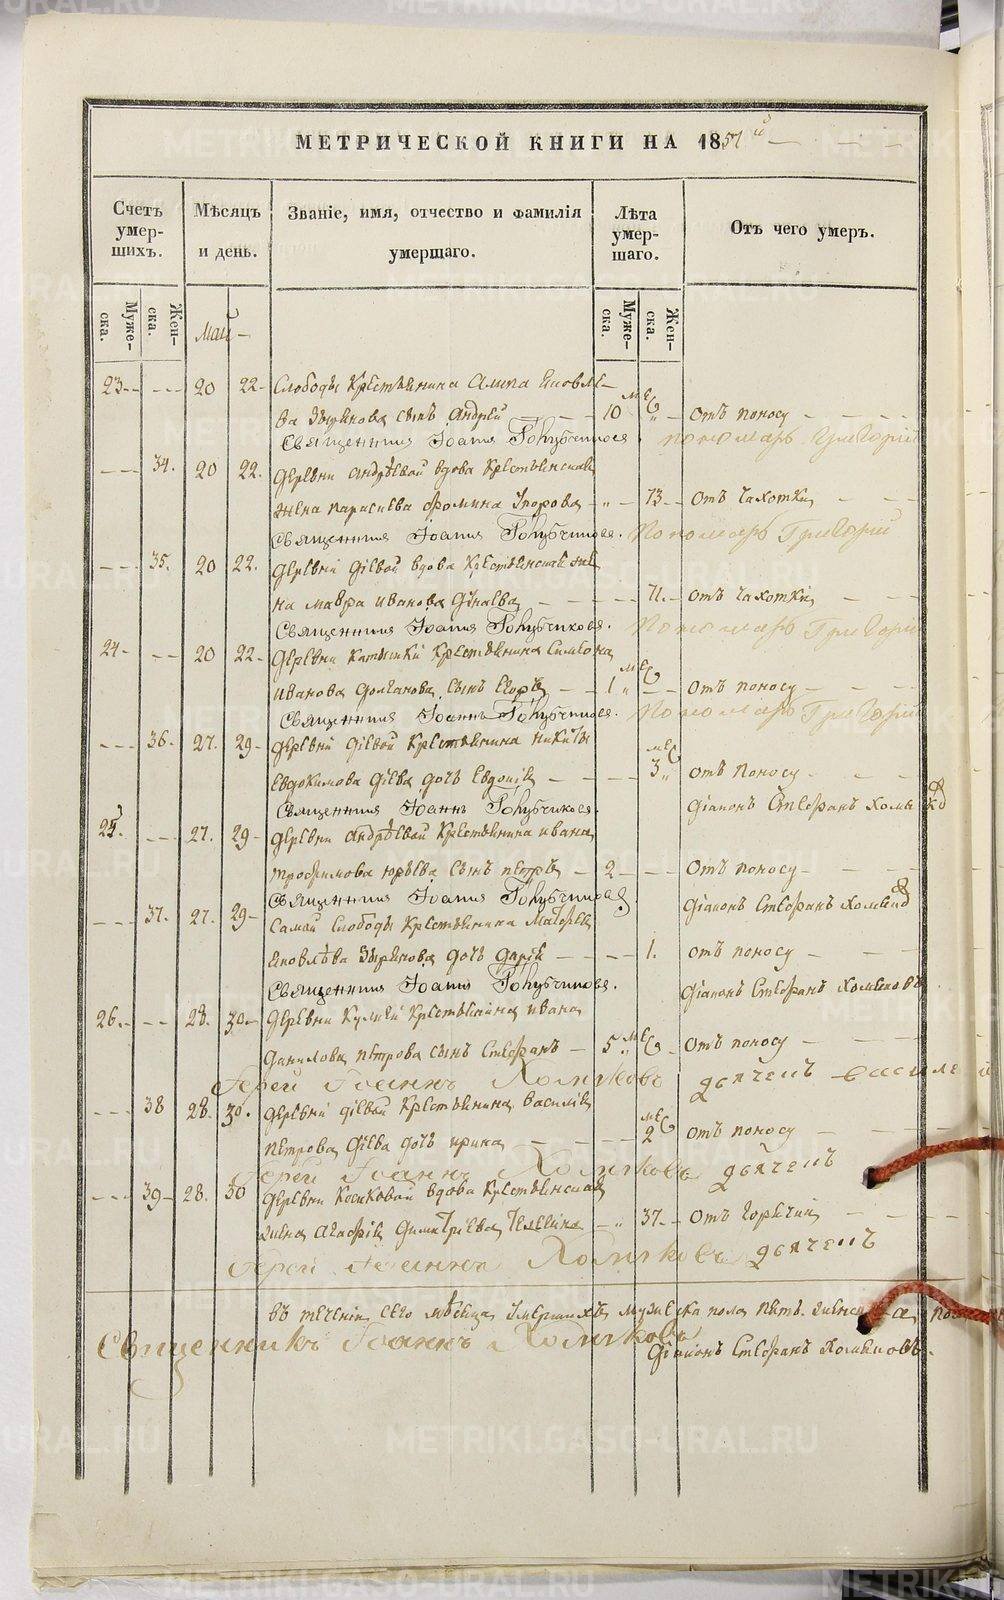 МЕТРИЧЕСКОЙ КНИГИ НА 1851й
Счетъ умер-шихъ.
Мѣсяцъ и день.
Званіе, имя, отчество и фамилія умершаго.
Лѣта умер-шаго.
Отъ чего умеръ.
Муже-ска.
Жен-ска.
Муже-ска.
Жен-ска.
Май
23 20 22 Слободы Крестьянина Яковле-
ва Зырянова сынъ Андрей 10 мес Отъ поносу
Священникъ Іоаннъ Голубчиковъ. пономарь Григорій
34. 20 22. Деревни Андрѣевой вдова Крестьянская
жена Параскева Фомина 73 Отъ чахотки
Священникъ Іоаннъ Голубчиковъ. Пономарь Григорий
35. 20 22. Деревни Фіевой вдова Крестьянская же
на Мавра Иванова 71. Отъ чахотки
Священникъ Іоаннъ Голубчиковъ. Пономарь Григорій
24 20 22 Деревни Крестьянина Симеона
Иванова Долганова сынъ Егоръ 1 мес Отъ поносу
Священникъ Іоаннъ Голубчиковъ. Пономарь Григорій
36. 27. 29 Деревни Фіевой Крестьянина Никиты
Евдокимова Фіева дочь Евдокія 3 мес Отъ поносу
Священникъ Іоаннъ Голубчиковъ. Діаконъ Стефанъ
25. 27. 29 Деревни Андрѣевой Крестьянина Ивана
Трофимова Юрьева сынъ Петръ 2 Отъ поносу
Священникъ Іоаннъ Голубчиковъ. Діаконъ Стефанъ
37. 27. 29 Самой Слободы Крестьянина
Яковлѣва Зырянова дочь Дарія 1. Отъ поносу
Священникъ Іоаннъ Голубчиковъ. Діаконъ Стефанъ Хомяковъ
26. 28. 30 Деревни Крестьянина Ивана
Данилова Петрова сынъ Стефанъ 5 мес Отъ поносу
Іерей Іоаннъ Хомяковъ дьячекъ
38 28. 30. Деревни Фіевой Крестьянина Василія
Петрова Фіева дочь Ирина 2 мес Отъ поносу
Іерей Іоаннъ Хомяковъ дьячекъ
39 28. 30 Деревни Косиковой вдова Крестьянская
жена Агафія Димитріева 37. Отъ горячки
Іерей Іоаннъ Хомяковъ дьячекъ
Въ теченіи сего мѣсяца умершихъ мужеска пола пять. женска
Священникъ Іоаннъ Хомяковъ
Діаконъ Стефанъ Хомяковъ.
METRIKI.GASO-URAL.RU